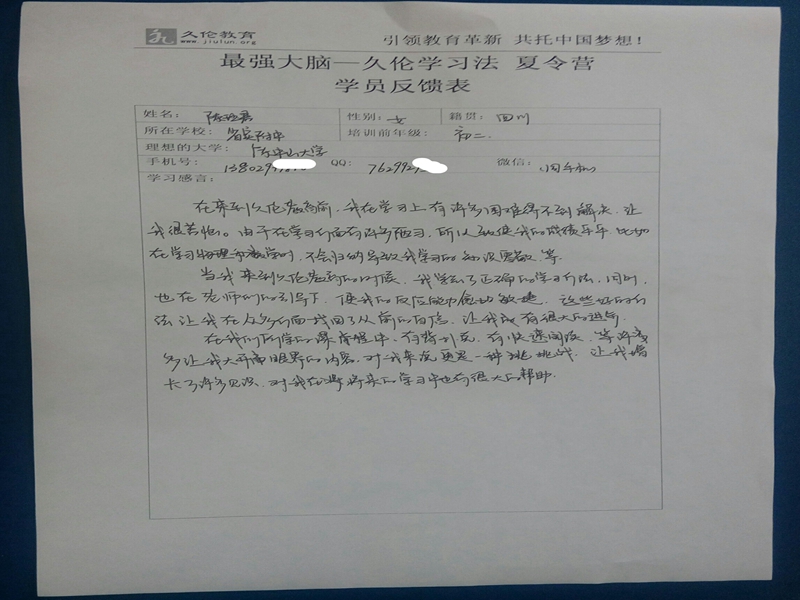 久伦教育
www.jiulun.org
引领教育革新 共托中国梦想!
最强大脑—久伦学习法 夏令营
学员反馈表
姓名: 陈
性别: 女
籍贯: 四川
所在学校: 省实附中
培训前年级: 初二
理想的大学: 中山大学
手机号: 13802
QQ: 762992
微信: 同手机
学习感言:
在来到久伦教育前,我在学习上有许多困难得不到解决,让
我很苦恼。由于在学习方面有许多陋习,所以致使我的成绩平平,比如
在学习物理和数学时,不会归纳导致我学习的知识 等。
当我来到久伦教育的时候,我学会了正确的学习方法,同时,
也在老师们的引导下,使我的反应能力更加敏捷,这些好的方
法让我在众多方面找回了从前的自信,让我 有很大的进步。
在我们所学的课程中,有 ,有快速阅读,等许
多让我大开眼界的内容,对我来说更是一种挑战,让我增
长了许多见识,对我在将来的学习中也有很大的帮助。